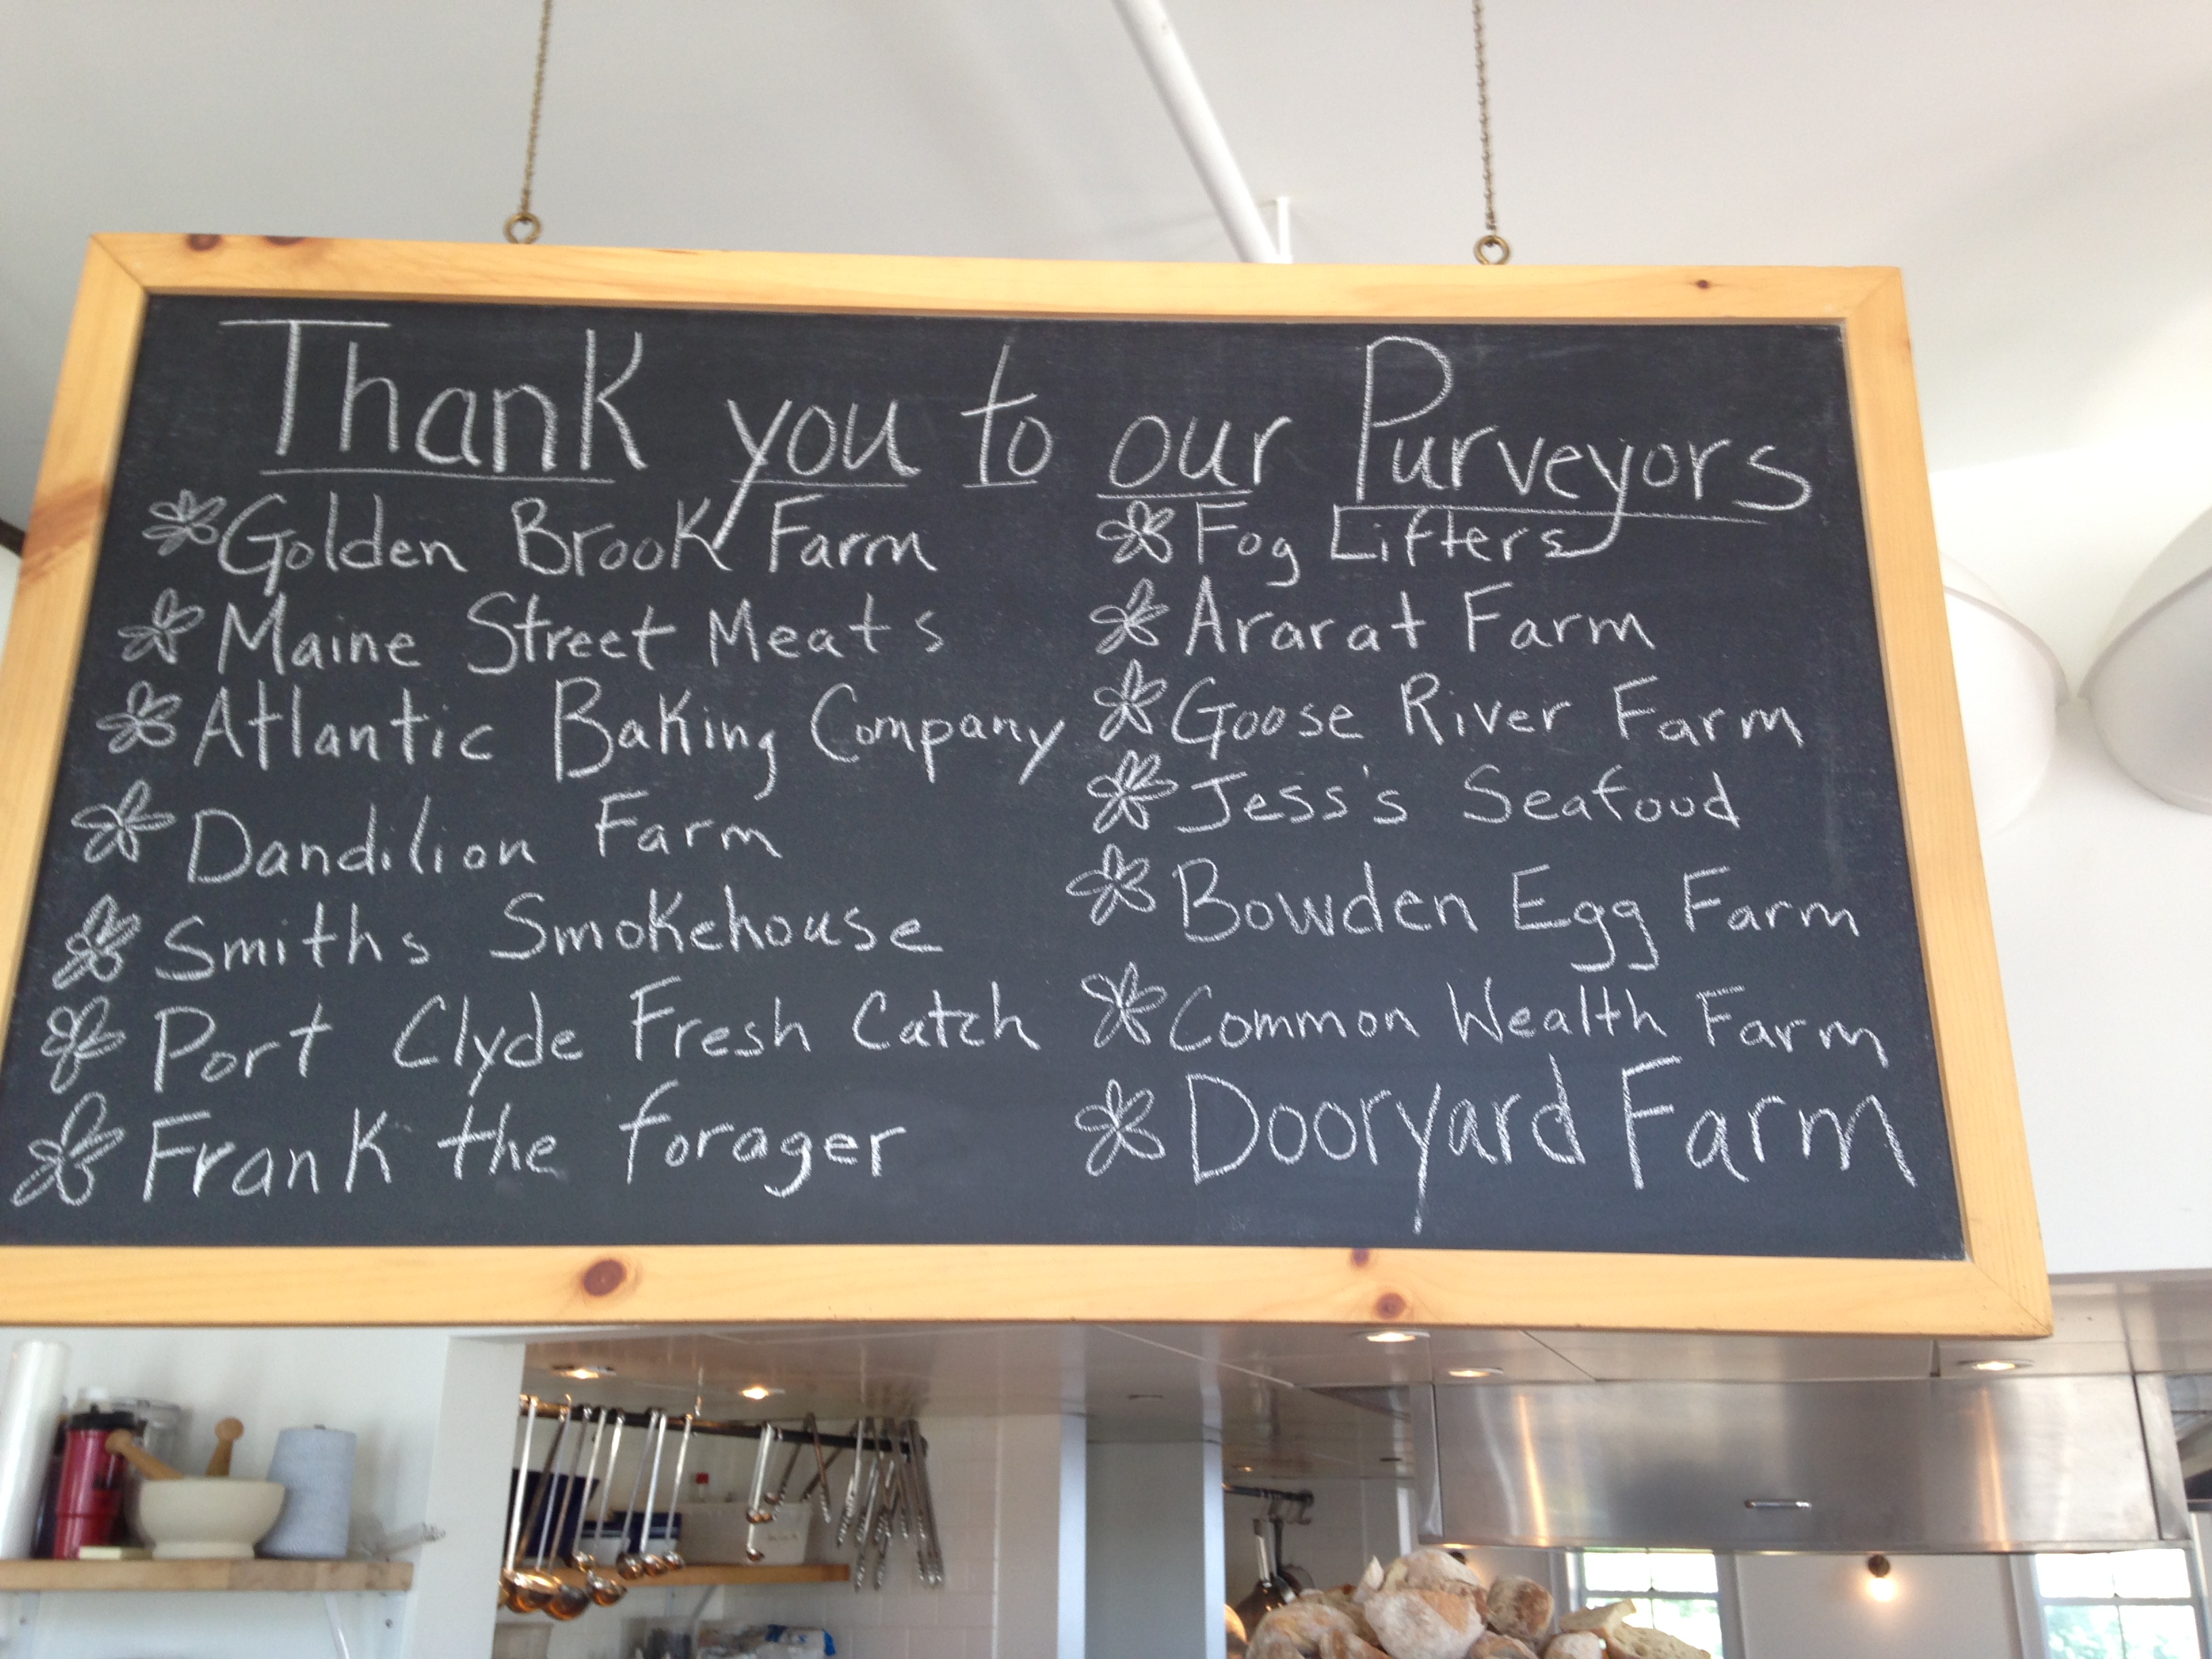 Thank you to our Purveyors
Golden Brook Farm
Maine Street Meats
Atlantic Baking Company
Dandilion Farm
Smiths Smokehouse
Port Clyde Fresh Catch
Frank the forager
Fog Lifters
Ararat Farm
Goose River Farm
Jess's Seafood
Bowden Egg Farm
Common Wealth Farm
Dooryard Farm